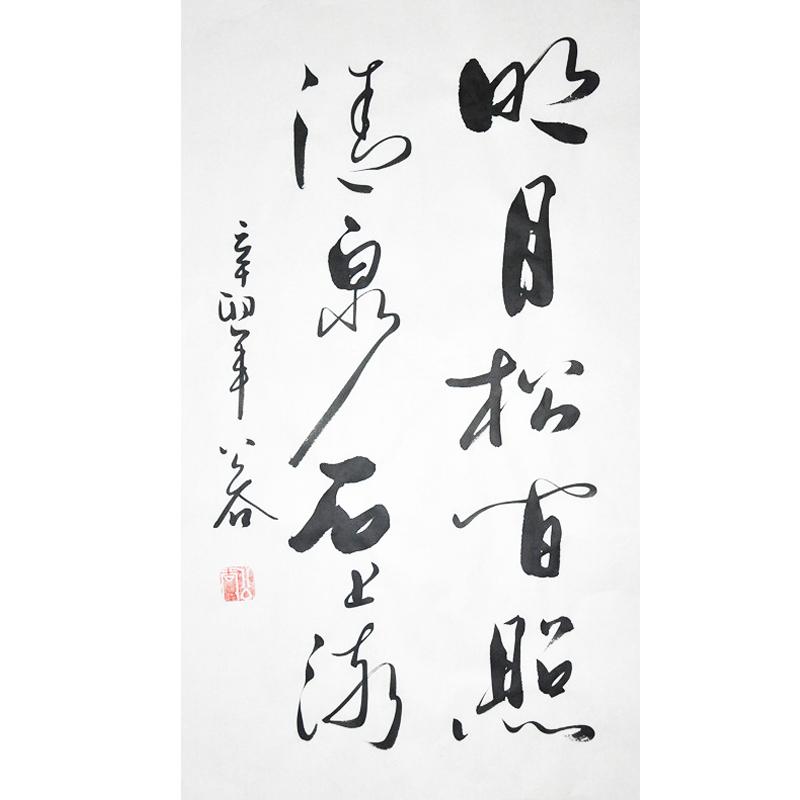 明月松間照
清泉石上流
辛卯年